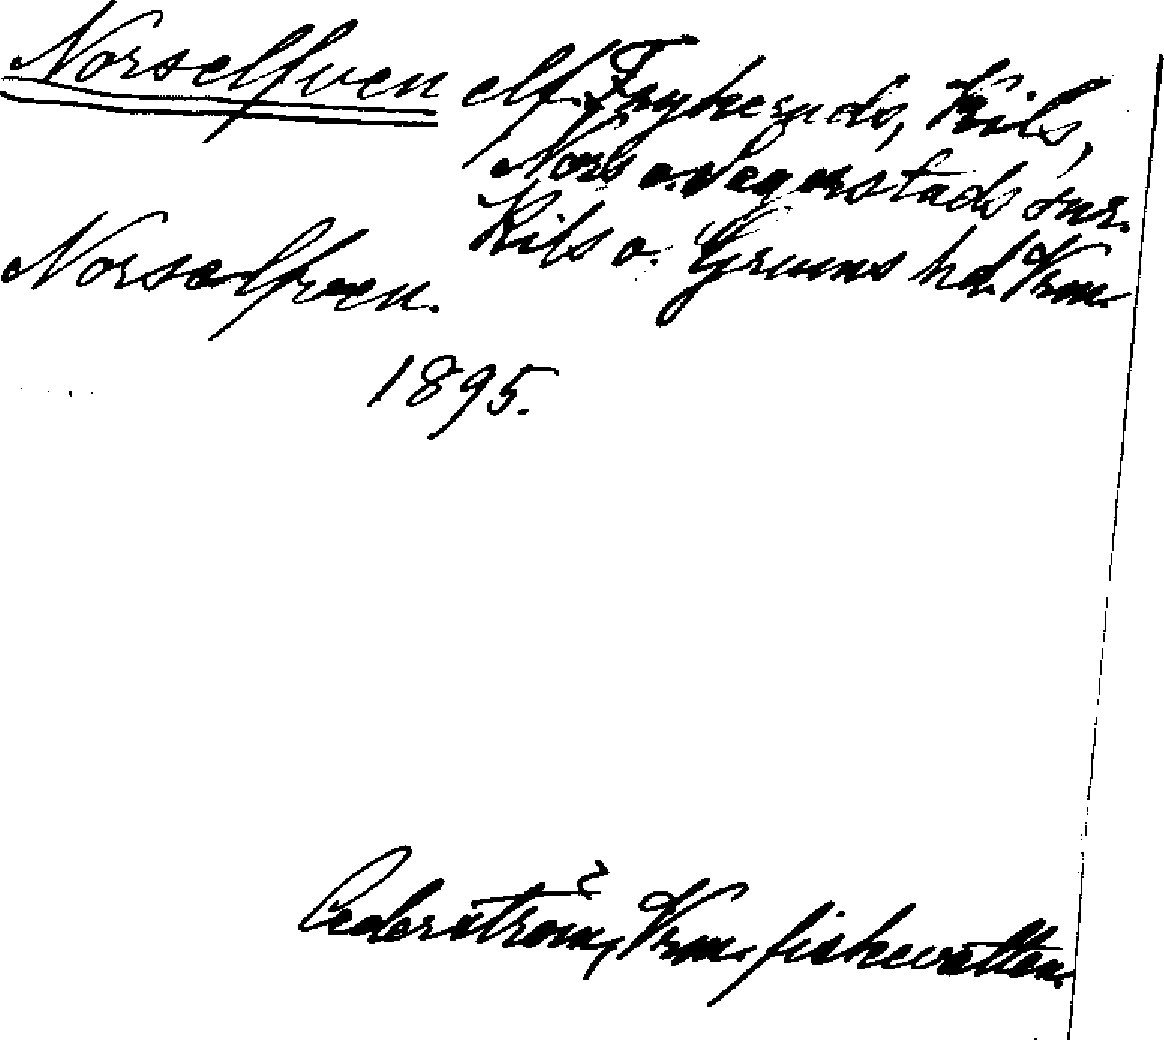 Norselfven elf Frykeruds, Kils,
Nors o. Segerstads snr.
Kils o. Grums hd. Vrm.
Norselfven.
1895.
Cederström, Vrm. fiskevatten.